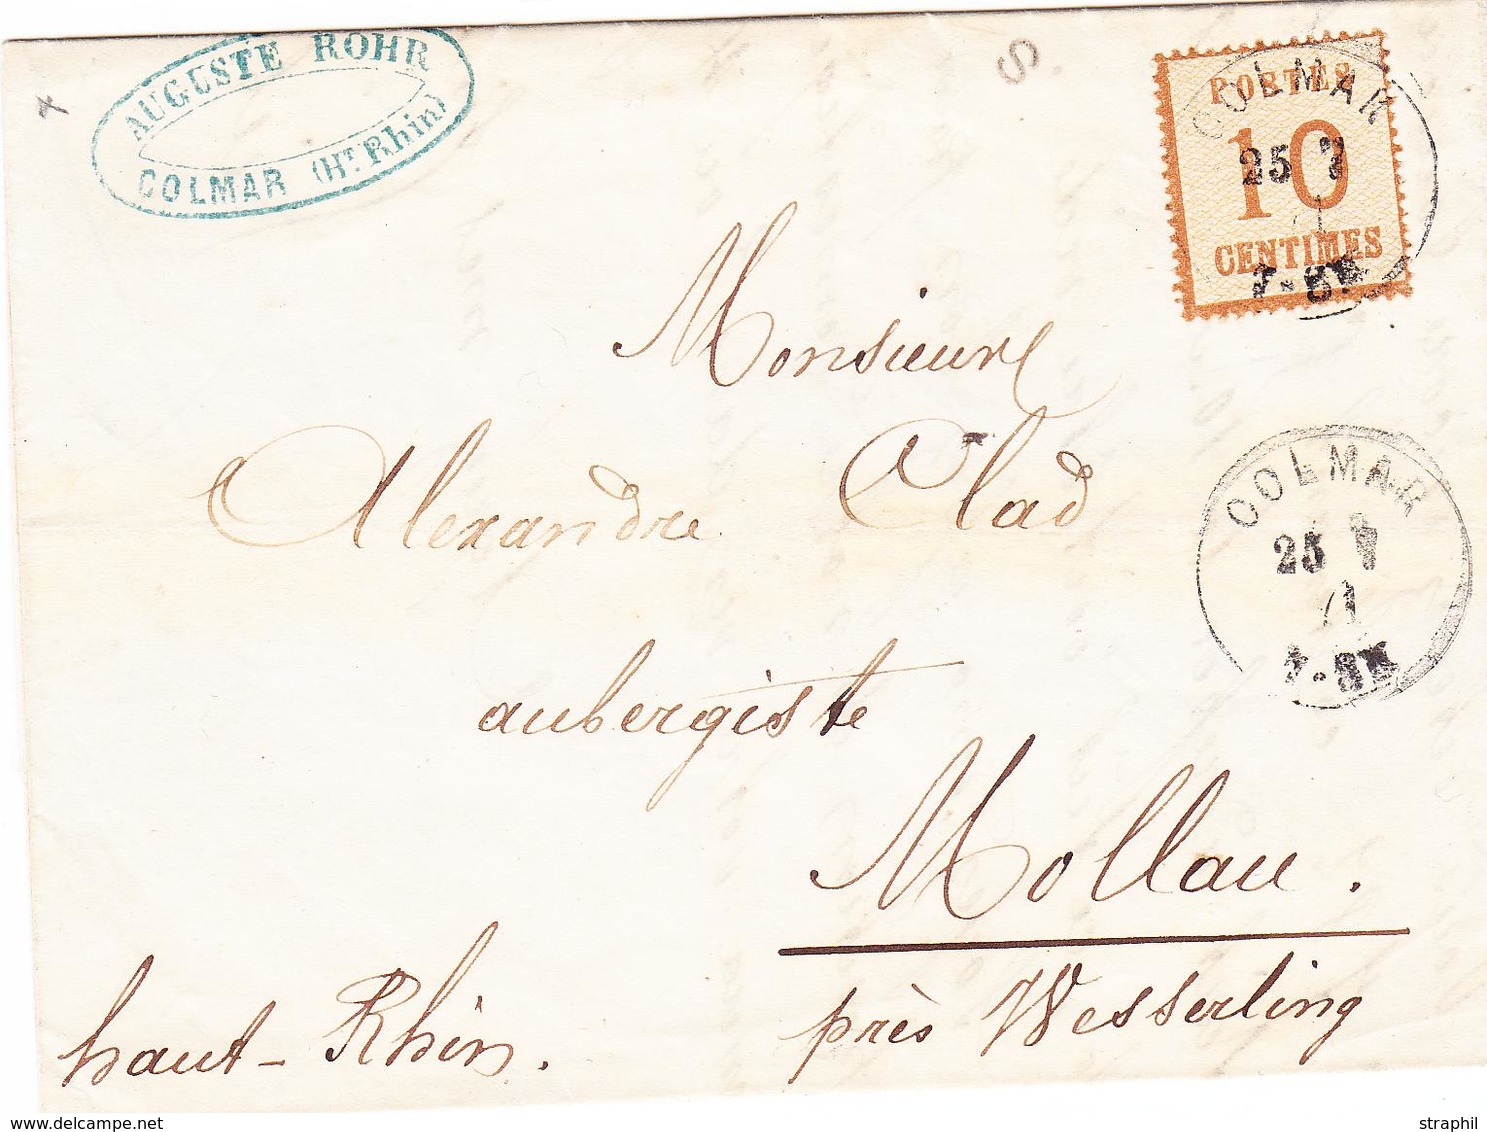 AUGUSTE ROHR
COLMAR (Ht. Rhin)
POSTES
10
CENTIMES
COLMAR
25 7
71
7-8N
Monsieur
Alexandre Clad
aubergiste
Mollau.
près Wesserling
haut-Rhin.
COLMAR
25 7
71
7-8N
www.delcampe.net
straphil